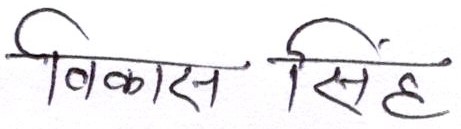 विकास सिंह